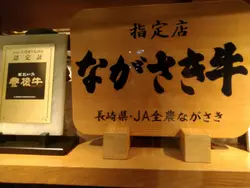 認定証
豊後牛
指定店
ながさき牛
長崎県・JA全農ながさき